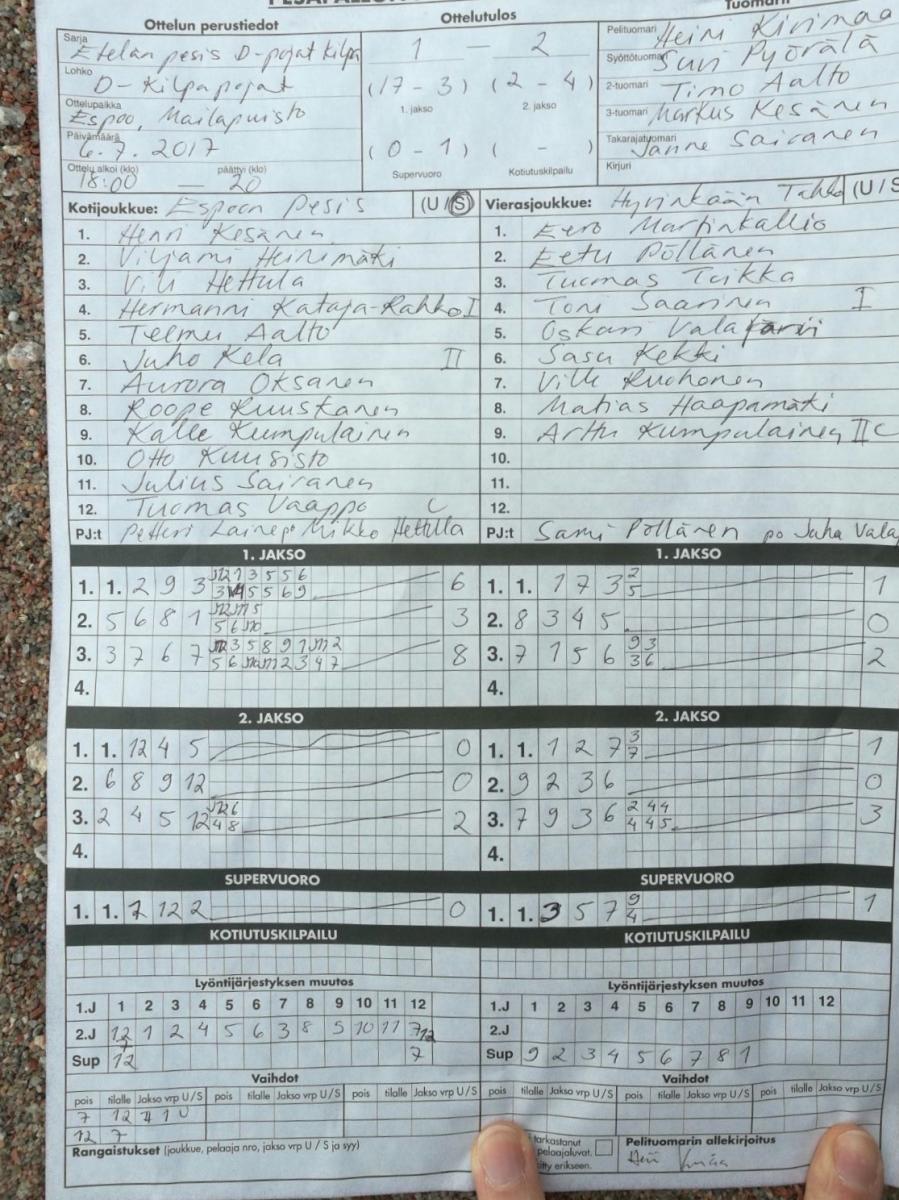 Ottelun perustiedot
Ottelutulos
Sarja Etelän pesis D-pojat kilpa
Lohko D-Kilpapojat
Ottelupaikka Espoo, Mailapuisto
Päivämäärä 6.7.2017
Ottelu alkoi (klo) päättyi (klo)
18:00 — 20
1 — 2
(17 - 3) (2 - 4)
1. jakso 2. jakso
(0 - 1) ( - )
Supervuoro Kotiutuskilpailu
Pelituomari Heini Kivimaa
Syöttötuomari Suvi Pyörälä
2-tuomari Timo Aalto
3-tuomari Markus Kesänen
Takarajatuomari Janne Sairanen
Kirjuri
Kotijoukkue: Espoon Pesis (U/S)
1. Henri Kesänen
2. Viljami Heinimäki
3. Vili Hettula
4. Hermanni Kataja-Rahko I
5. Teemu Aalto
6. Juho Kela II
7. Aurora Oksanen
8. Roope Ruuskanen
9. Kalle Kumpulainen
10. Otto Kuusisto
11. Julius Sairanen
12. Tuomas Vaappo C
PJ:t Petteri Mikko Hettula
Vierasjoukkue: Hyvinkään Tahko (U/S
1. Eero Martinkallio
2. Eetu Pöllänen
3. Tuomas Toikka
4. Toni Saarinen I
5. Oskari Valajärvi
6. Sasu Kekki
7. Ville Ruohonen
8. Matias Haapamäki
9. Arttu Kumpulainen II C
10.
11.
12.
PJ:t Sami Pöllänen po Juha Vala
1. JAKSO
1. 1. 2 9 3 6
2. 5 6 8 1 3
3. 3 7 6 7 8
4.
1. JAKSO
1. 1. 1 7 3 2 5 1
2. 8 3 4 5 0
3. 7 1 5 6 9 3 3 6 2
4.
2. JAKSO
1. 1. 12 4 5 0
2. 6 8 9 12 0
3. 2 4 5 12 2
4.
2. JAKSO
1. 1. 1 2 7 3 7 1
2. 9 2 3 6 0
3. 7 9 3 6 2 4 4 4 4 5 3
4.
SUPERVUORO
1. 1. 7 12 2 0
SUPERVUORO
1. 1. 3 5 7 9 4 1
KOTIUTUSKILPAILU
KOTIUTUSKILPAILU
Lyöntijärjestyksen muutos
1.J 1 2 3 4 5 6 7 8 9 10 11 12
2.J 12 1 2 4 5 6 3 8 9 10 11 7
Sup 12 7
Lyöntijärjestyksen muutos
1.J 1 2 3 4 5 6 7 8 9 10 11 12
2.J
Sup 9 2 3 4 5 6 7 8 1
Vaihdot
pois tilalle Jakso vrp U/S pois tilalle Jakso vrp U/S pois tilalle Jakso vrp U/S
7 12 1 U
12 7
Vaihdot
pois tilalle Jakso vrp U/S pois tilalle Jakso vrp U/S pois tilalle Jakso vrp U/S
Rangaistukset (joukkue, pelaaja nro, jakso vrp U / S ja syy)
tarkastanut
pelaajaluvat.
erikseen.
Pelituomarin allekirjoitus